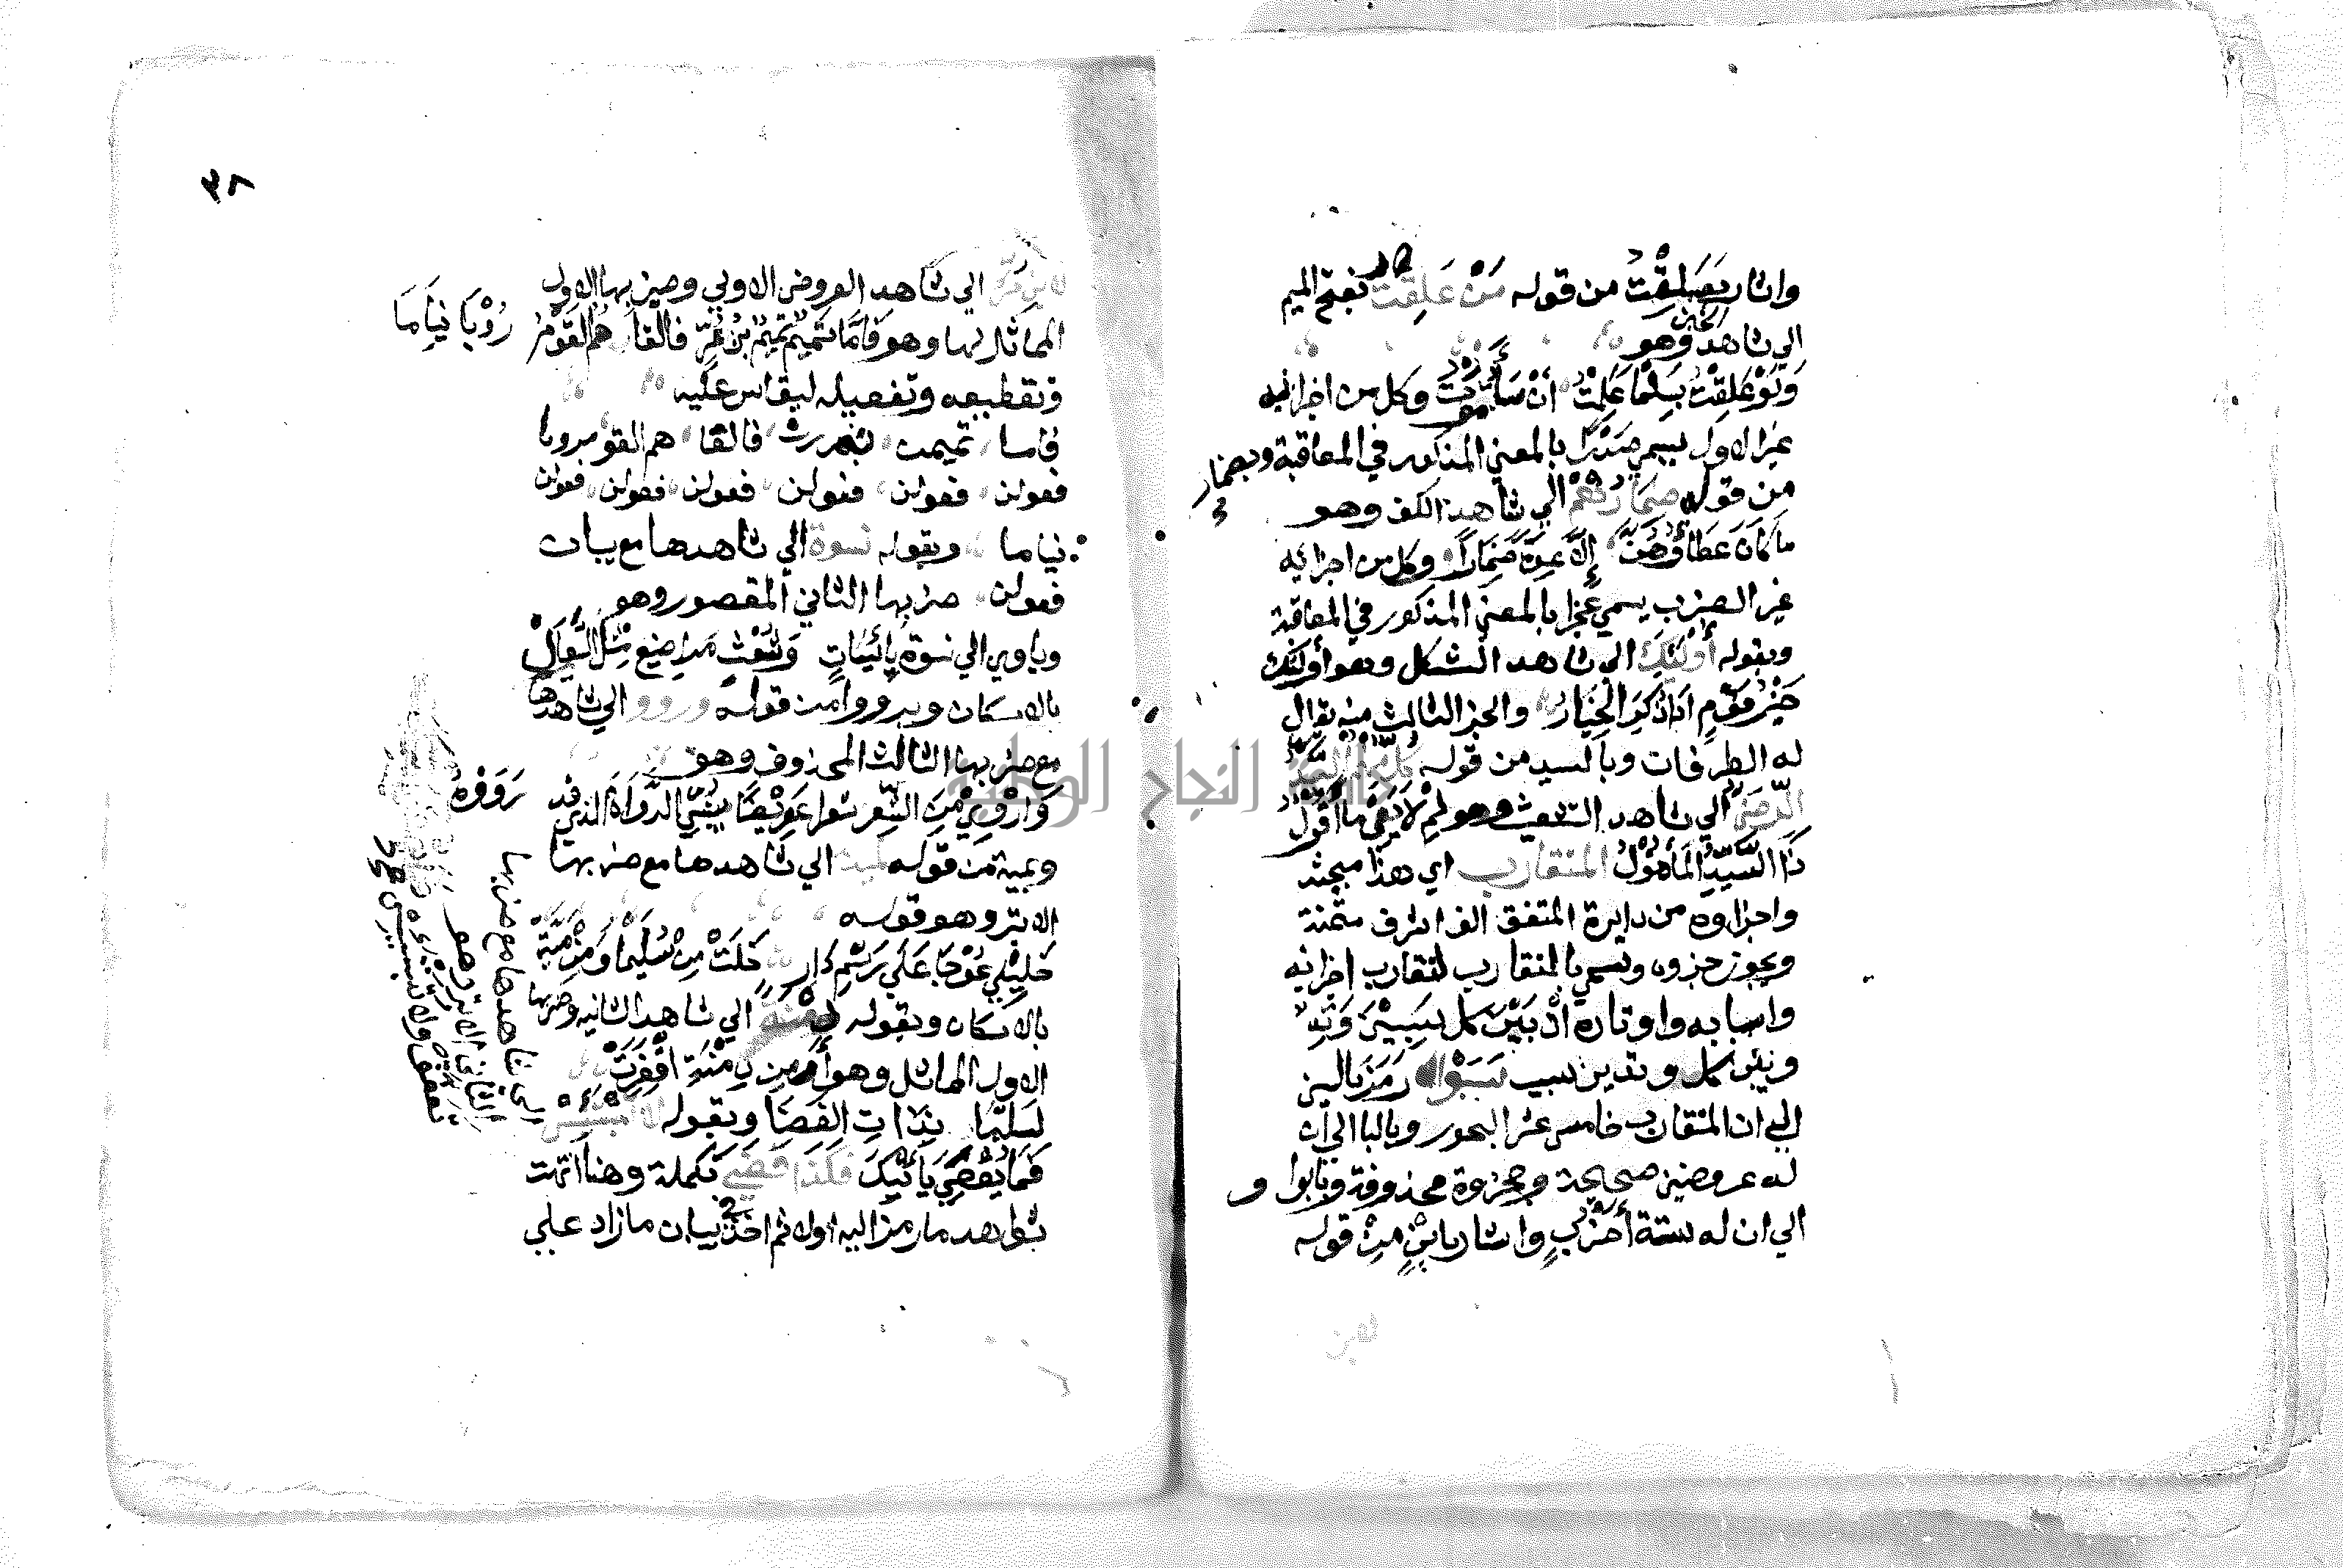 واشار بعلقت من قوله مَنْ عَلِقَتْ بفتح الميم
الي شاهد الخبن وهو
وَلَوْ عَلِقْتَ بِسَلْمَا عَلِمْتَ أنْ سَتَمُوتُ وكل من اجزائه
غير الاول يسمي صَدْرًا بالمعني المذكور في المعاقبة وبضمار
من قوله ضِمَارُهُمْ الي شاهد الكف وهو
ما كَانَ عَطَاؤُهُنَّ إلّا عِدَةً ضِمَارًا وكل من اجزائه
غير الضرب يسمي عجزا بالمعني المذكور في المعاقبة
وبقوله أولئِكَ الي شاهد الشكل وهو أولئك
خَيْرُ قَوْمٍ اذا ذُكِرَ الخِيَارُ والجزء الثالث منه يقال
له الطرفات وبالسيد من قوله
الي شاهد التشعيث وهو لِمْ لا يَعِي ما أقول
ذَا السَّيِّدُ المَأمُولُ المتقارب اي هذا مبحثه
واجزاوه من دايرة المتفق الف اشرف مثمنة
ويجوز جزوه وسمي بالمتقارب لتقارب اجزائه
واسبابه واوتاده اذ بَيْنَ كل سببين وَتِد
وبَيْنَ كل وتدين سبب رمز بالسين
الي ان المتقارب خامس عشر البحور وبالبا الي ان
له عروضين صحيحة ومجزوة محذوفة وبالواو
الي ان له ستة أضرُبٍ واشار بابن مِنْ قوله
٣٨
ابن مُرٍّ الي شاهد العروض الاولي وضربها الاول
المماثل لها وهو فاَمَّا تميم تميم بْنُ مُرٍّ فالفاهم القوم رُوْبَا نِيَامَا
وتقطيعه وتفعيله ليقاس عليه
فاما تميمت فالفا هم القو مروبا
فعولن فعولن فعولن فعولن فعولن فعولن فعولن
نياما وبقوله نسوة الي شاهدها مع بيان
فعولن ضربها الثاني المقصور وهو
وياوي الي نسوة بائساتٍ وشُعْثٍ مراضيع مِثل السَّعَالْ
بالاسكان وبرووا من قوله ورووا الي شاهدها
مع ضربها الثالث المحذوف وهو
وَأرْوِي مِنَ الشِّعْرِ شعرا عَوِيصًا يُنَسِّي الرواةَ الذي قد رَوَوْهُ
وبمية من قوله لمية الي شاهدها مع ضربها
الابتر وهو قوله
خَلِيْلَيَّ عُوْجَا عَلَي رَسْمِ دَارٍ خَلَتْ مِنْ سُلَيْمَا وَمِنْ مَيَّةْ
بالاسكان وبقوله دِمْنَةٌ الي شاهد الثانيه وضربها
الاول المماثل وهو أمِن دِمْنَةٍ اقْفَرَتْ
لِسَلْمَا بِذَاتِ الغَضَا وبقوله لا تبتئسْ
فَمَا يُقْضَي يَأتِيكَ فكذا قضي تكملة وهنا انتهت
شواهد مارمز اليه اولا ثم اخذ في بيان مازاد علي
الي شاهدها مع ضربها
الثاني الابتر وهو
تعفف ولا تبتئس